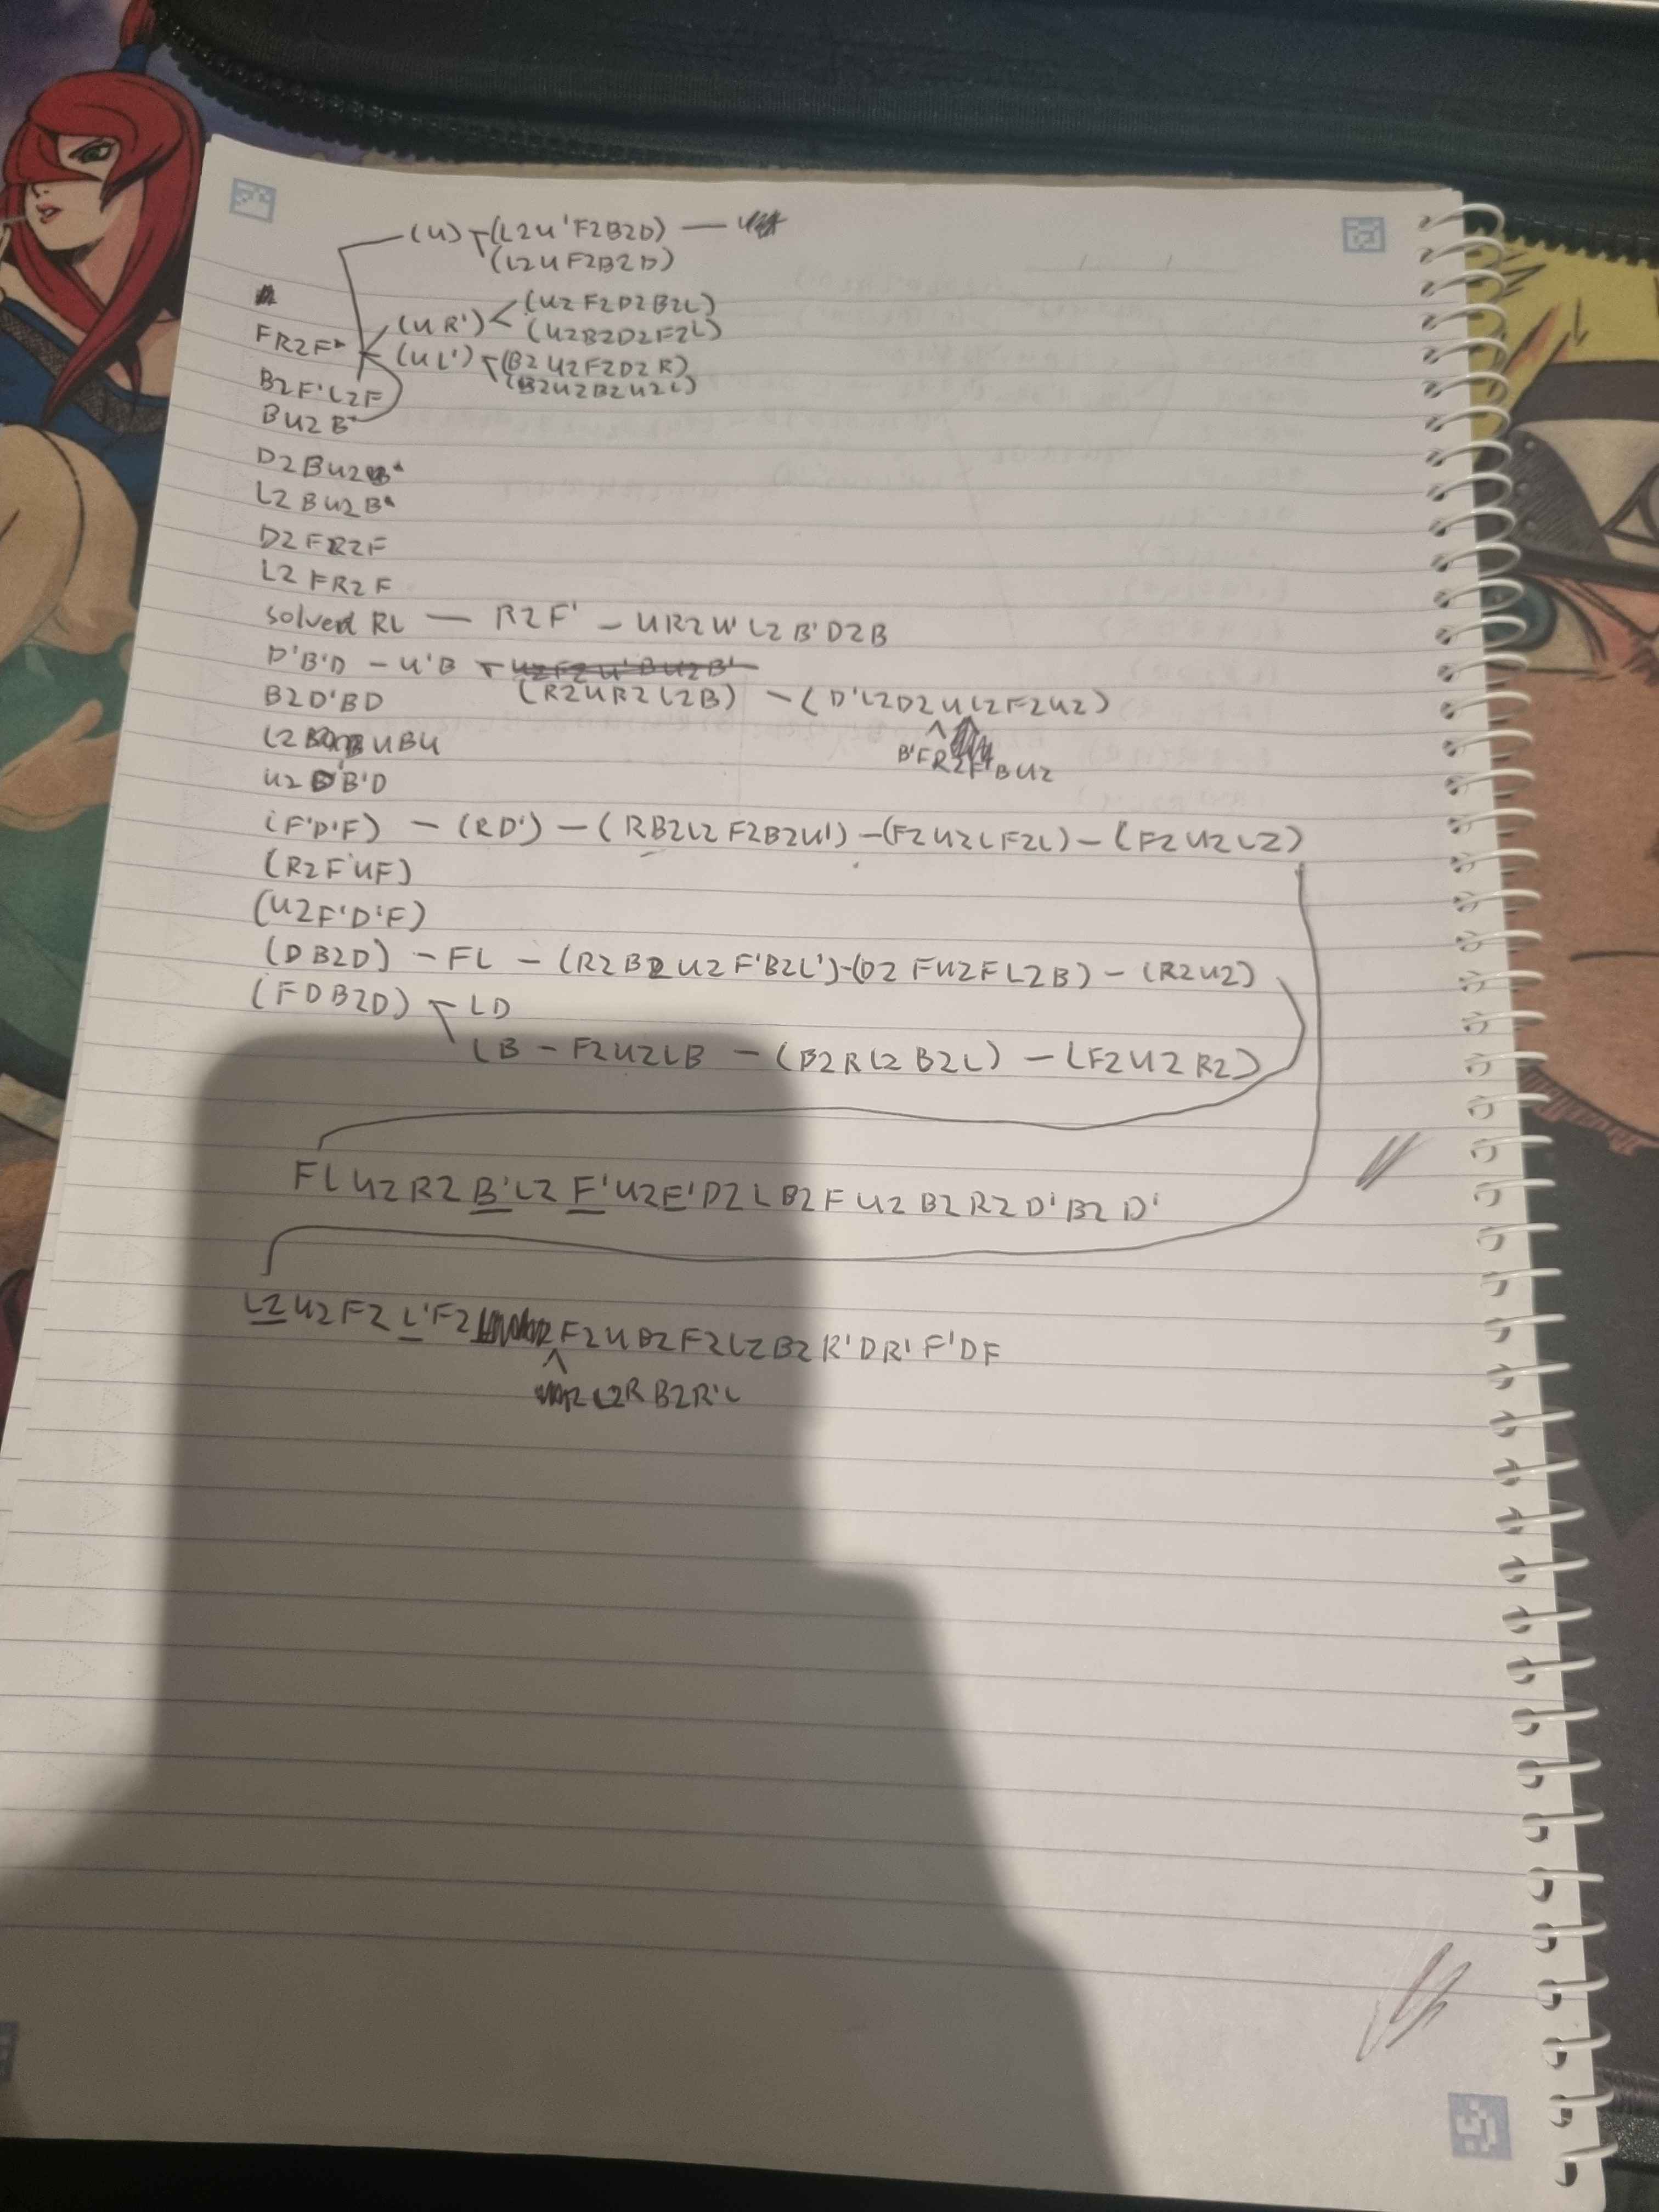 (U) (L2U'F2B2D) —
(L2UF2B2D)
(U2F2D2B2L)
FR2F' (UR') (U2B2D2F2L)
(UL') (B2U2F2D2R)
B2F'L2F (B2U2B2U2L)
BU2B'
D2BU2B'
L2BU2B'
D2FR2F
L2FR2F
solved RL — R2F' - UR2U'L2B'D2B
D'B'D - U'B U2F2U'BU2B'
B2D'BD (R2UR2L2B) - (D'L2D2UL2F2U2)
L2 UBU B'FR2F'BU2
U2D'B'D
(F'D'F) - (RD') - (RB2L2F2B2U') - (F2U2LF2L) - (F2U2L2)
(R2F'UF)
(U2F'D'F)
(DB2D) - FL - (R2B2U2F'B2L') - (D2FU2FL2B) - (R2U2)
(FDB2D) LD
LB - F2U2LB - (B2RL2B2L) - (F2U2R2)
FLU2R2B'L2F'U2F'D2LB2FU2B2R2D'B2D'
L2U2F2L'F2 F2UB2F2L2B2R'DR'F'DF
L2RB2R'L